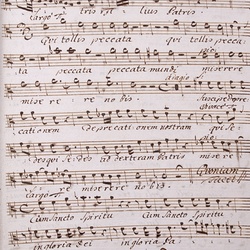 Largo tris Fi lius Patris.
qui tollis peccata qui tollis pec
ca ta peccata mundi miserere
Adagio
mise re re no bis. Suscipe depre
cati onem deprecati onem nostram qui
sedes qui Sedes ad dexteram Patris mise
Largo re miserere nobis. Quoniam tacet
Cum Sancto Spiritu Cum Sancto Spiritu
in gloria Dei in gloria